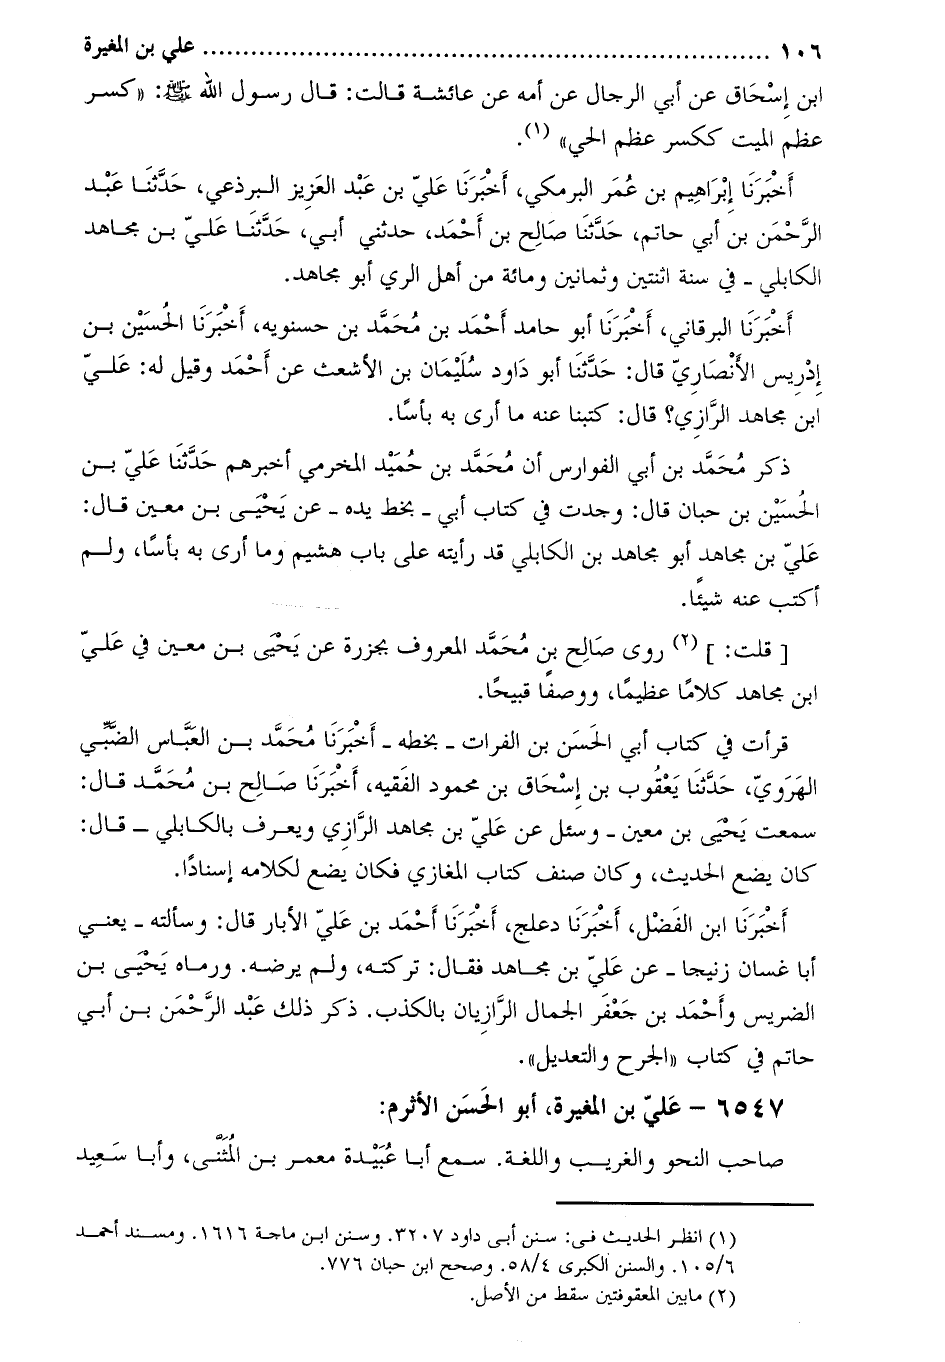 ١٠٦ ........................................................................ علي بن المغيرة
ابن إسْحَاق عن أبي الرجال عن أمه عن عائشة قالت: قال رسول الله ﷺ: «كسر
عظم الميت ككسر عظم الحي» (١).
أَخْبَرَنَا إبْرَاهِيم بن عُمَر البرمكي، أَخْبَرَنَا عَليّ بن عَبْد العَزيز البرذعي، حَدَّثنَا عَبْد
الرَّحْمَن بن أبي حاتم، حَدَّثَنَا صَالِح بن أَحْمَد، حدثني أبي، حَدَّثَنَا عَليّ بن مجاهد
الكابلي ـ في سنة اثنتين وثمانين ومائة من أهل الري أبو مجاهد.
أَخْبَرَنَا البرقاني، أَخْبَرَنَا أبو حامد أَحْمَد بن مُحَمَّد بن حسنويه، أَخْبَرَنَا الحُسَيْن بن
إدْرِيس الأَنْصَارِيّ قال: حَدَّثَنَا أبو دَاود سُلَيْمَان بن الأشعث عن أَحْمَد وقيل له: عَليّ
ابن مجاهد الرَّازِي؟ قال: كتبنا عنه ما أرى به بأسًا.
ذكر مُحَمَّد بن أبي الفوارس أن مُحَمَّد بن حُمَيْد المخرمي أخبرهم حَدَّثَنَا عَليّ بن
الحُسَيْن بن حبان قال: وجدت في كتاب أبي ـ بخط يده ـ عن يَحْيَى بن معين قال:
عَليّ بن مجاهد أبو مجاهد بن الكابلي قد رأيته على باب هشيم وما أرى به بأسًا، ولم
أكتب عنه شيئًا.
[ قلت: ] (٢) روى صَالِح بن مُحَمَّد المعروف بجزرة عن يَحْيَى بن معين في عَليّ
ابن مجاهد كلامًا عظيمًا، ووصفًا قبيحًا.
قرأت في كتاب أبي الحَسَن بن الفرات ـ بخطه ـ أَخْبَرَنَا مُحَمَّد بن العَبَّاس الضَّبِّي
الهَرَوِيّ، حَدَّثَنَا يَعْقُوب بن إسْحَاق بن محمود الفَقيه، أَخْبَرَنَا صَالِح بن مُحَمَّد قال:
سمعت يَحْيَى بن معين ـ وسئل عن عَليّ بن مجاهد الرَّازِي ويعرف بالكابلي ـ قال:
كان يضع الحديث، وكان صنف كتاب المغازي فكان يضع لكلامه إسنادًا.
أَخْبَرَنَا ابن الفَضْل، أَخْبَرَنَا دعلج، أَخْبَرَنَا أَحْمَد بن عَليّ الأبار قال: وسألته ـ يعني
أبا غسان زنيجا ـ عن عَليّ بن مجاهد فقال: تركته، ولم يرضه. ورماه يَحْيَى بن
الضريس وأَحْمَد بن جَعْفَر الجمال الرَّازِيان بالكذب. ذكر ذلك عَبْد الرَّحْمَن بن أبي
حاتم في كتاب «الجرح والتعديل».
٦٥٤٧ – عَليّ بن المغيرة، أبو الحَسَن الأثرم:
صاحب النحو والغريب واللغة. سمع أبا عُبَيْدة معمر بن المُثَنَّى، وأبا سَعِيد
(١) انظر الحديث في: سنن أبي داود ٣٢٠٧. وسنن ابن ماجة ١٦١٦. ومسند أحمد
٦/١٠٥. والسنن الكبرى ٤/٥٨. وصحح ابن حبان ٧٧٦.
(٢) مابين المعقوفتين سقط من الأصل.